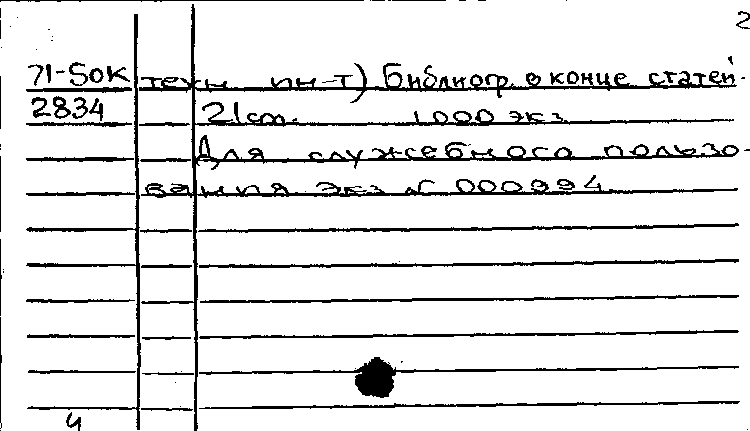 2
71-5ок техн. ин-т) Библиогр. в конце статей.
2834 21 cm. 1000 экз.
Для служебного пользо-
вания Экз № 000994
4